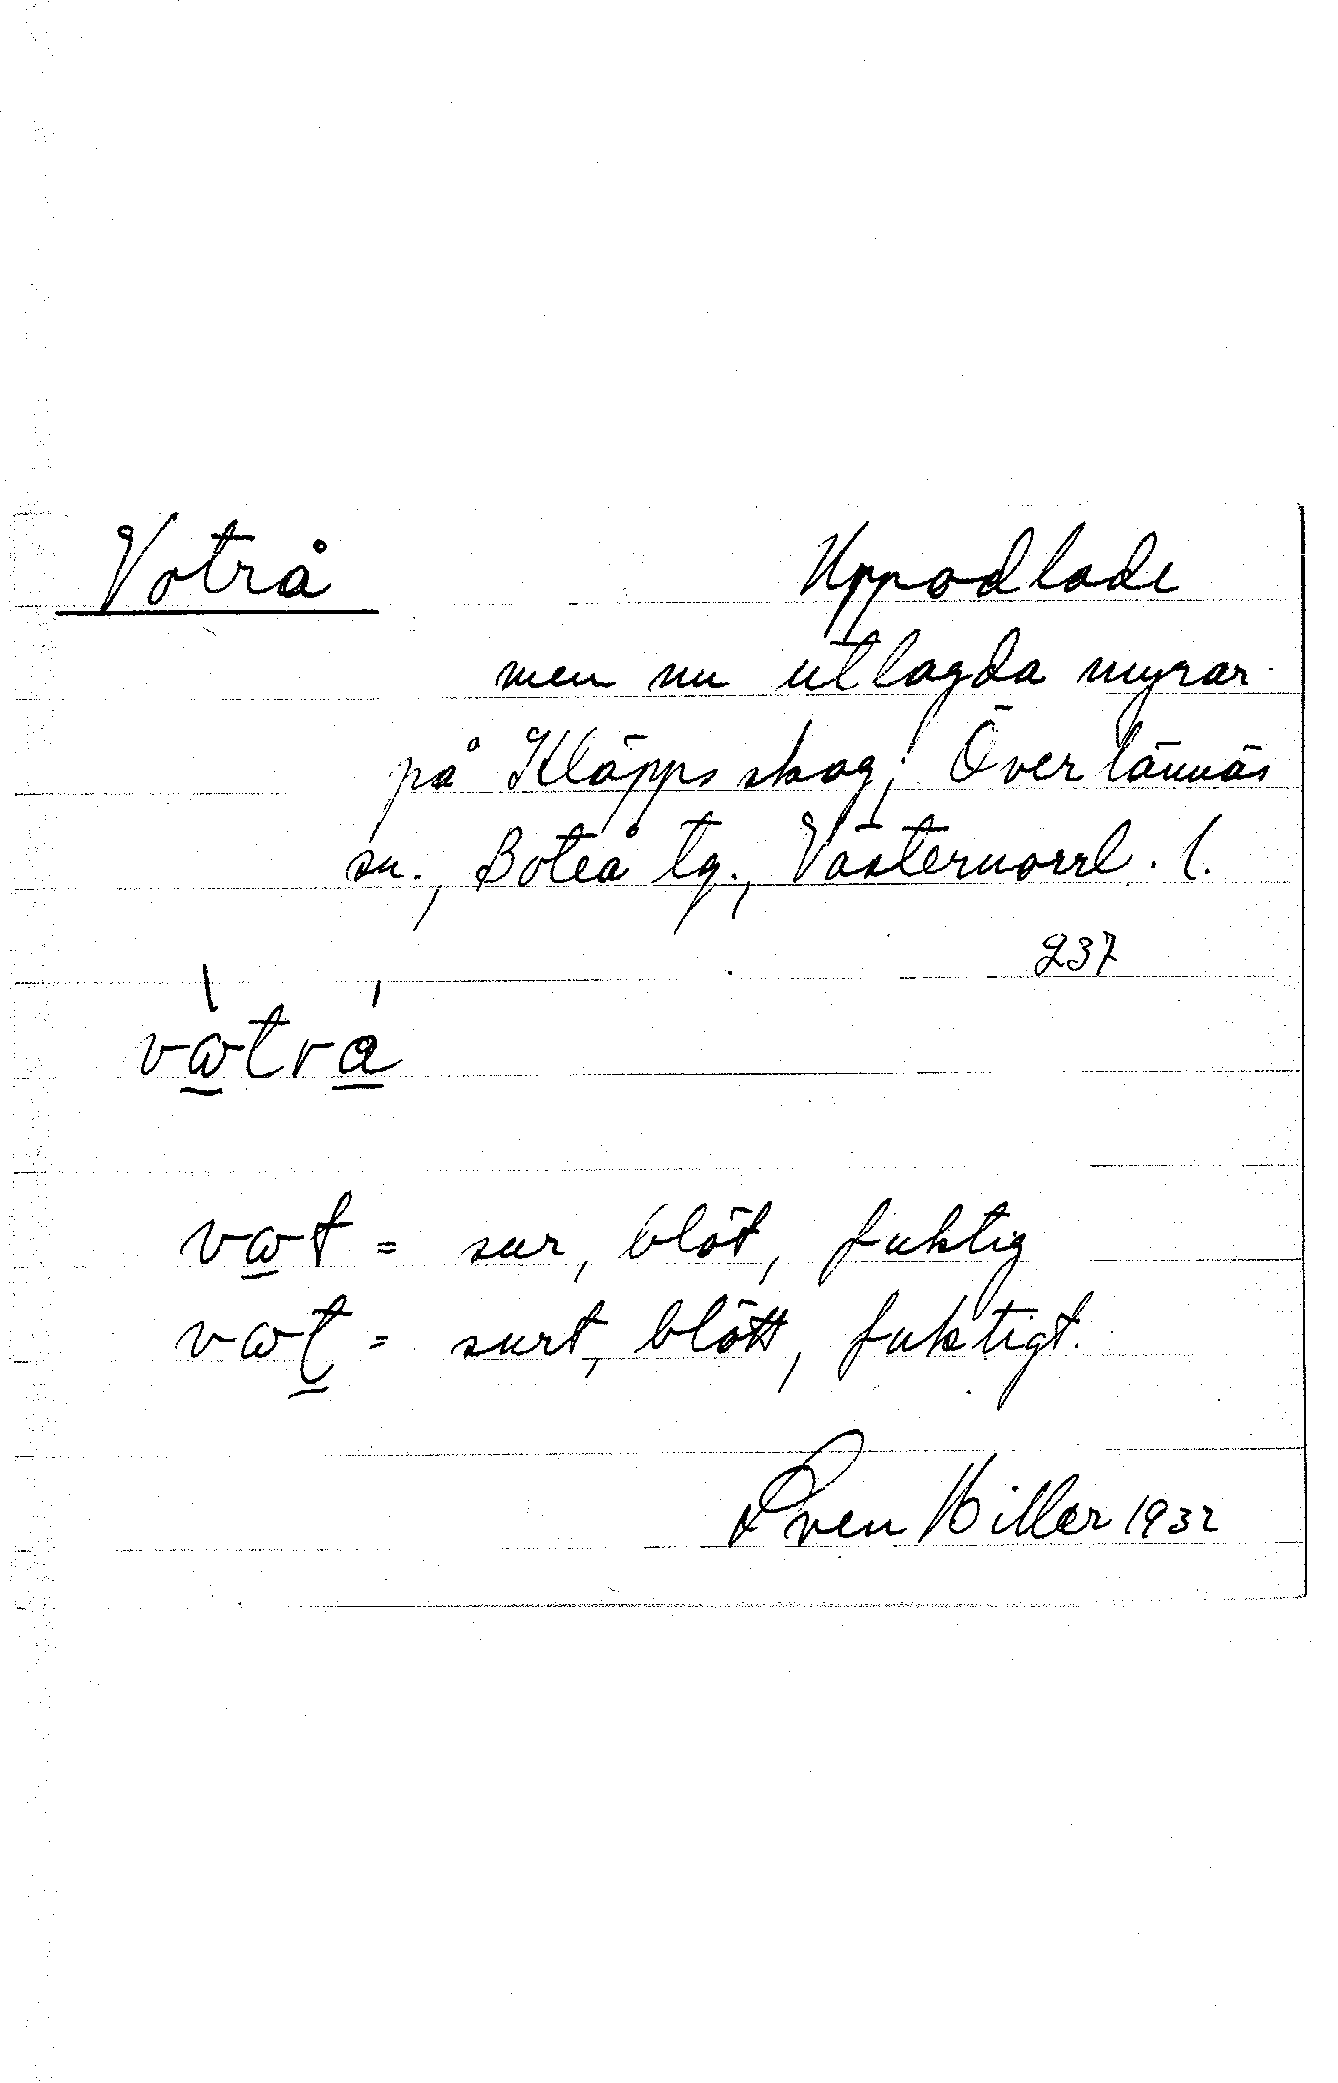 Voträ Uppodlade
men nu utlagda myrar
på Kläpps skog; Överlännäs
sn., Boteå tg., Västernorrl. l.
237
vàtrá
vat = sur, blöt, fuktig
vat = surt, blött, fuktigt.
Sven Hiller 1932